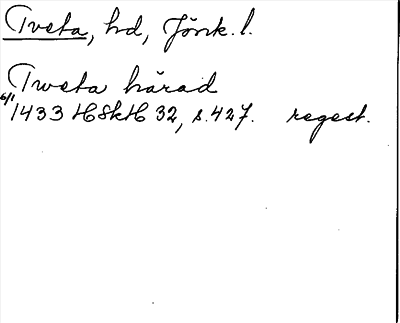 Tveta, hd, Jönk. l.
Tweta härad
6/1 1433 HSkH 32, s. 427. regest.